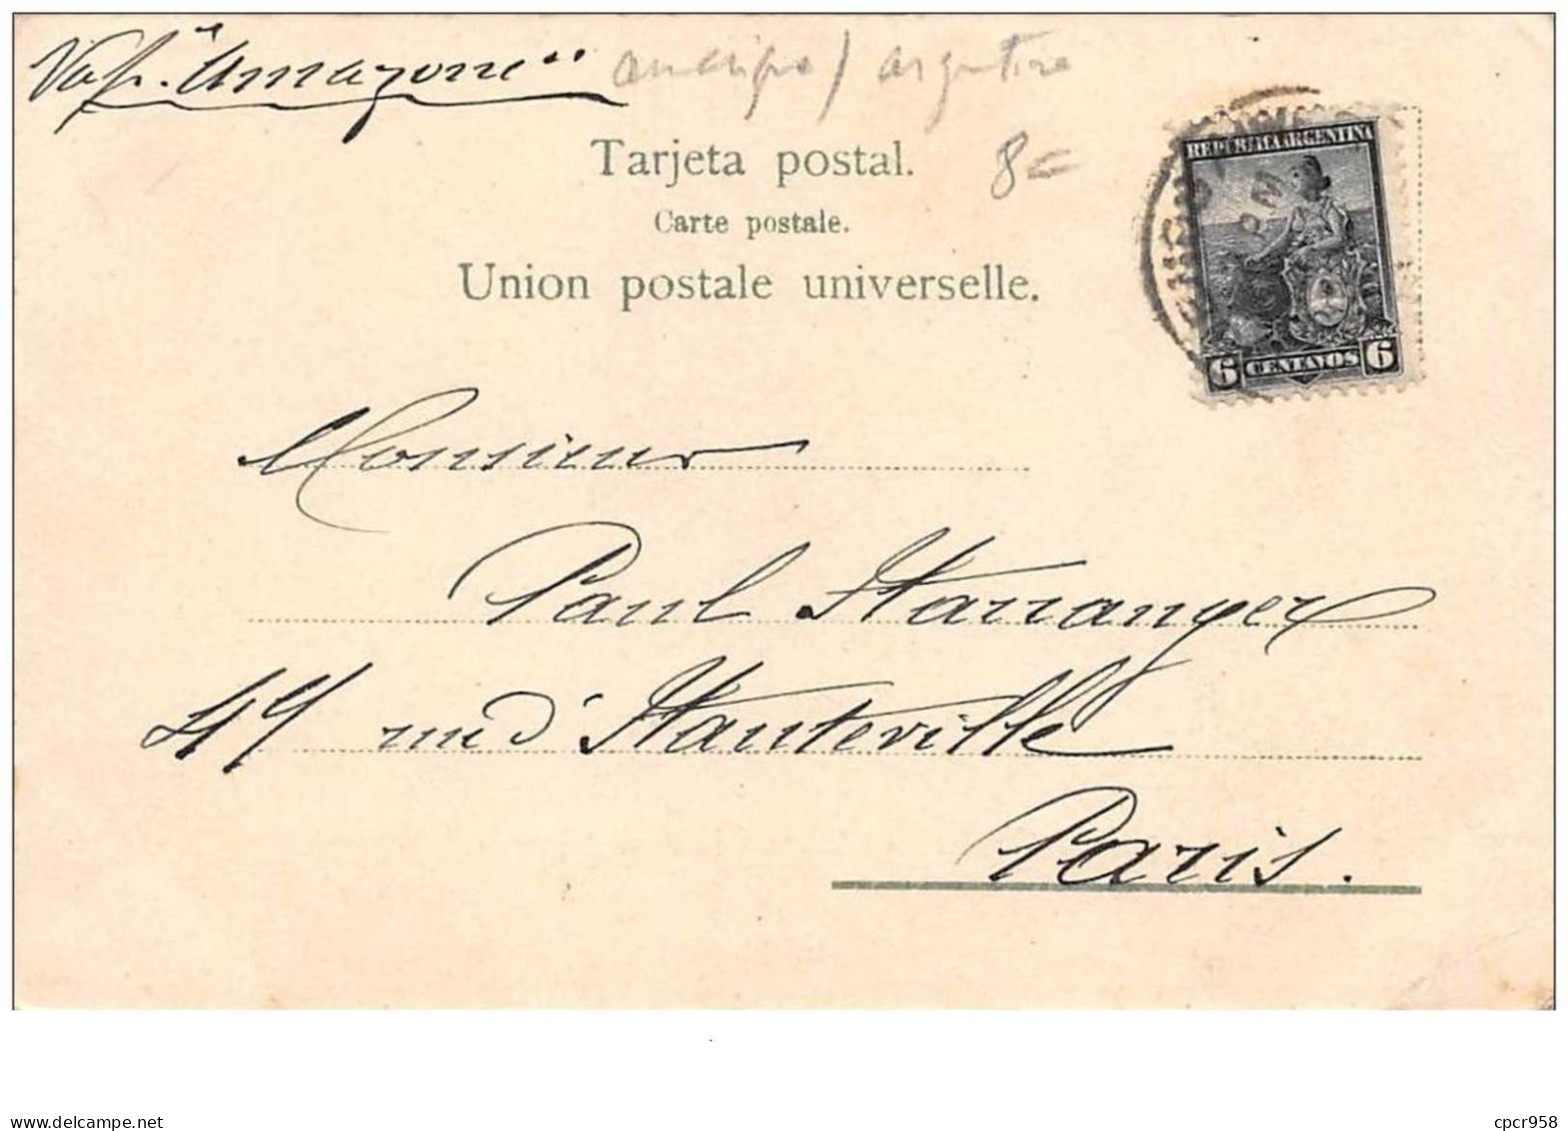 Vap. "Amazone" / argentine
Tarjeta postal.
8€
Carte postale.
Union postale universelle.
REPUBLICA ARGENTINA
PM
6 CENTAVOS 6
Monsieur
Paul Harranger
49 rue d'Hauteville
Paris.
www.delcampe.net
cpcr958